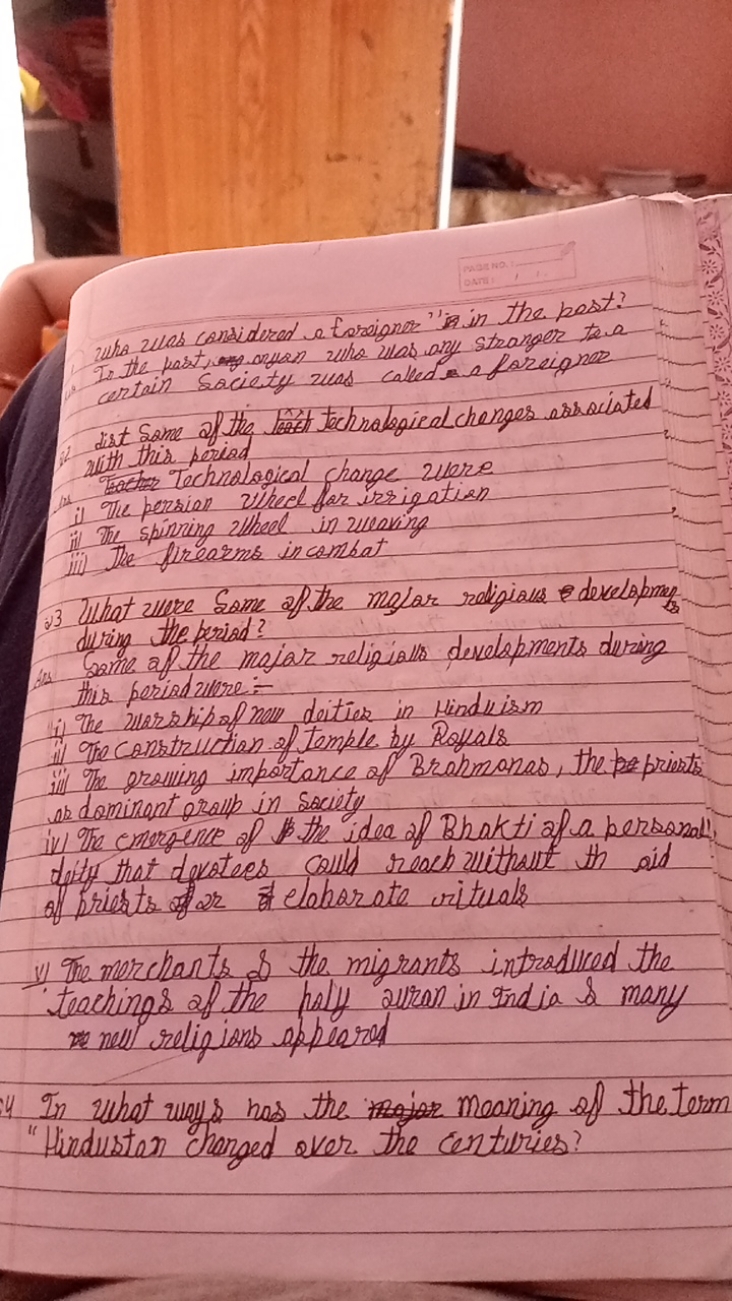 PAGE NO. :
DATE :
who was considered a foreigner" in the past?
In the past, anyon who was any stranger to a
certain Society was called a foreigner
list Some of the technological changes associated
with this period
Technological change were
i) The persion wheel for irrigation
ii) The spinning wheel in weaving
iii) The firearms in combat
Q3 What were Some of the major religious developmen
ts
during the period?
Ans Some of the major religious developments during
this period were :-
i) The worship of new deities in Hinduism
ii) The construction of temple by Royals
iii) The growing importance of Brahmanas, the priests
as dominant group in Society
iv) The emergence of the idea of Bhakti of a personal
deity that devotees could reach without th aid
of priests or elaborate rituals
v) The merchants & the migrants introduced the
teachings of the holy quran in India & many
new religions appeared
Q4 In what ways has the meaning of the term
"Hindustan changed over the centuries?